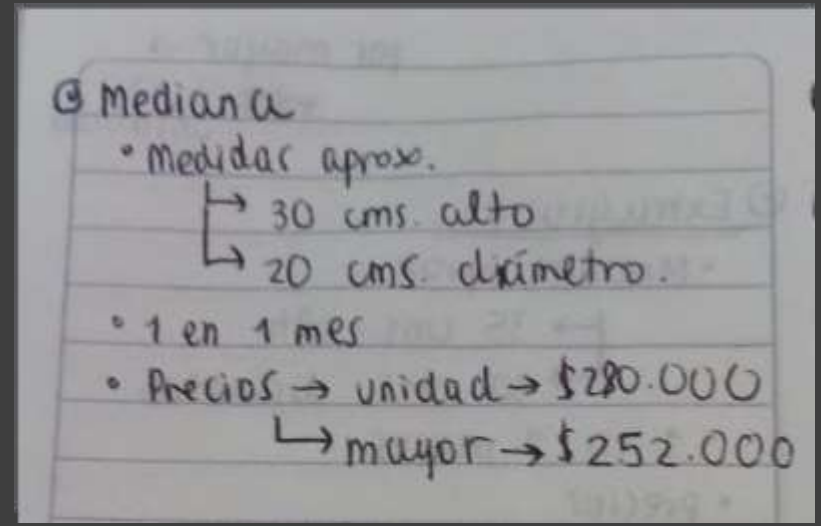 Mediana
• Medidas aprox.
↳ 30 cms. alto
↳ 20 cms. diámetro.
• 1 en 1 mes
• Precios → unidad → $280.000
↳ mayor → $252.000